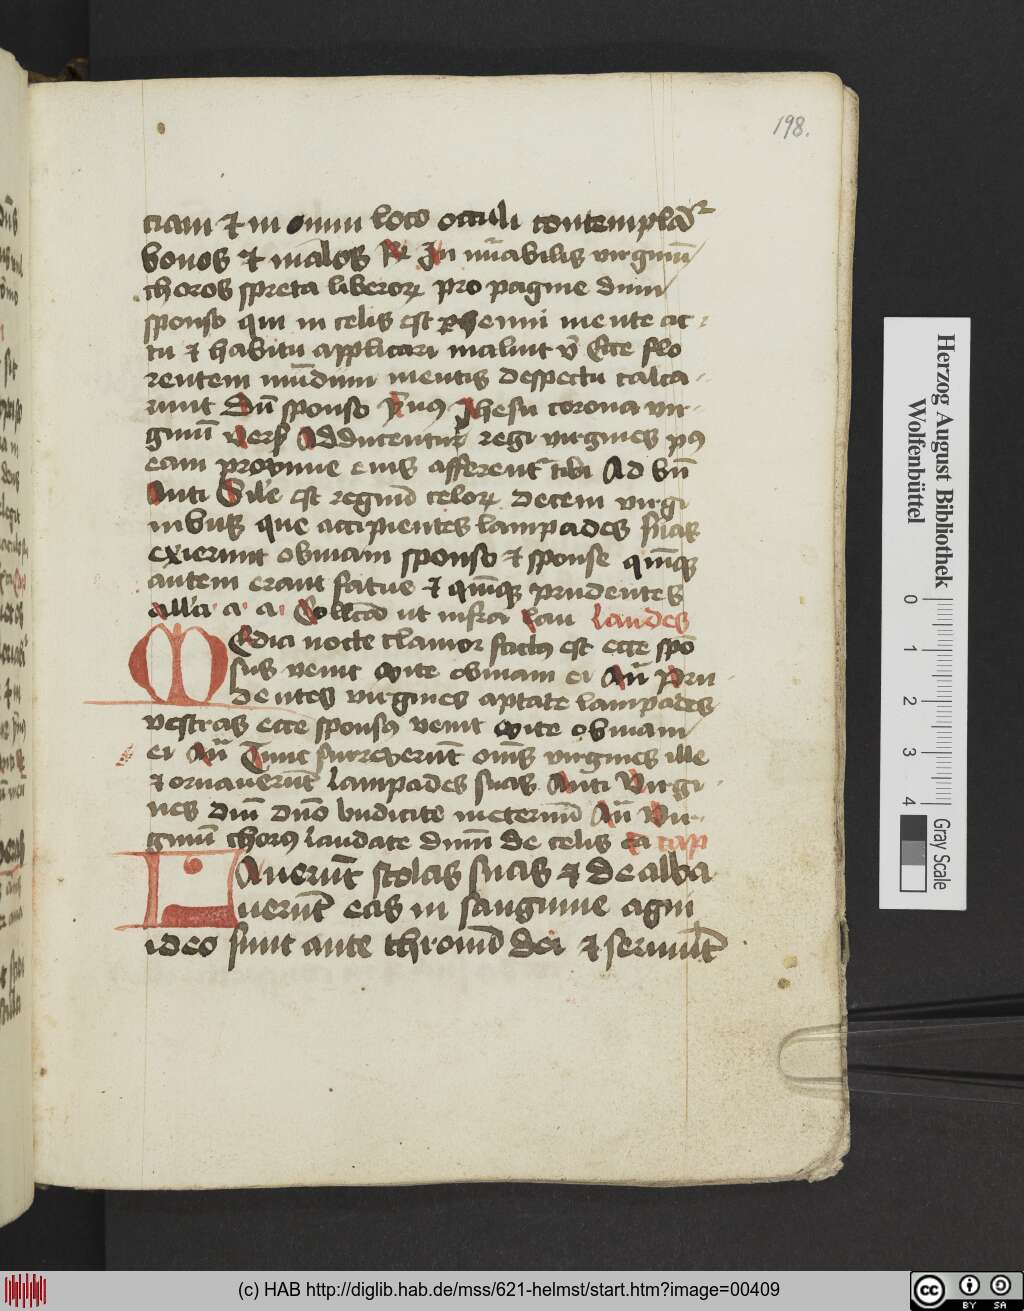 198.
ciam et in omni loco occuli contemplāt2
bonos et malos R In mīabilis virginū
choros spreta liberorꝝ pro pagine dum
sponso qui in celis est ꝑhenni mente ac
tu et habitu applicari maluit v̄ Ecce flo
rentem mūdum mentis despectu calca
runt Dn̄ sponso Ihesu corona vir
ginū vers Adducentur regi virgines
eam proxime eius afferentᷣ tibi Ad bn̄
Anti Sile est regnū celorꝝ decem virgi
nibus que accipientes lampades suas
exierunt obuiam sponso et sponse quīqꝫ
autem erant fatue et quīqꝫ prudentes
all'a a a Collcā ut infra Lau Laudes
Media nocte clamor factꝰ est ecce spō
sus venit exite obuiam ei An̄ Pru
dentes virgines aptate lampades
vestras ecce sponsꝰ venit exite obuiam
ei An̄ Tunc surrexerūt om̄s virgines ille
et ornauerūt lampades suas Anti Virgi
nes dn̄i dn̄o bndicite in eternū An̄ Vir
ginū chorꝰ laudate dnm̄ de celis ca cap
Lauerūt stolas suas et dealba
uerūt eas in sanguine agni
ideo sunt ante thronū dei et seruiūt
Herzog August Bibliothek
Wolfenbüttel
0 1 2 3 4
Gray Scale
(c) HAB http://diglib.hab.de/mss/621-helmst/start.htm?image=00409
cc BY SA